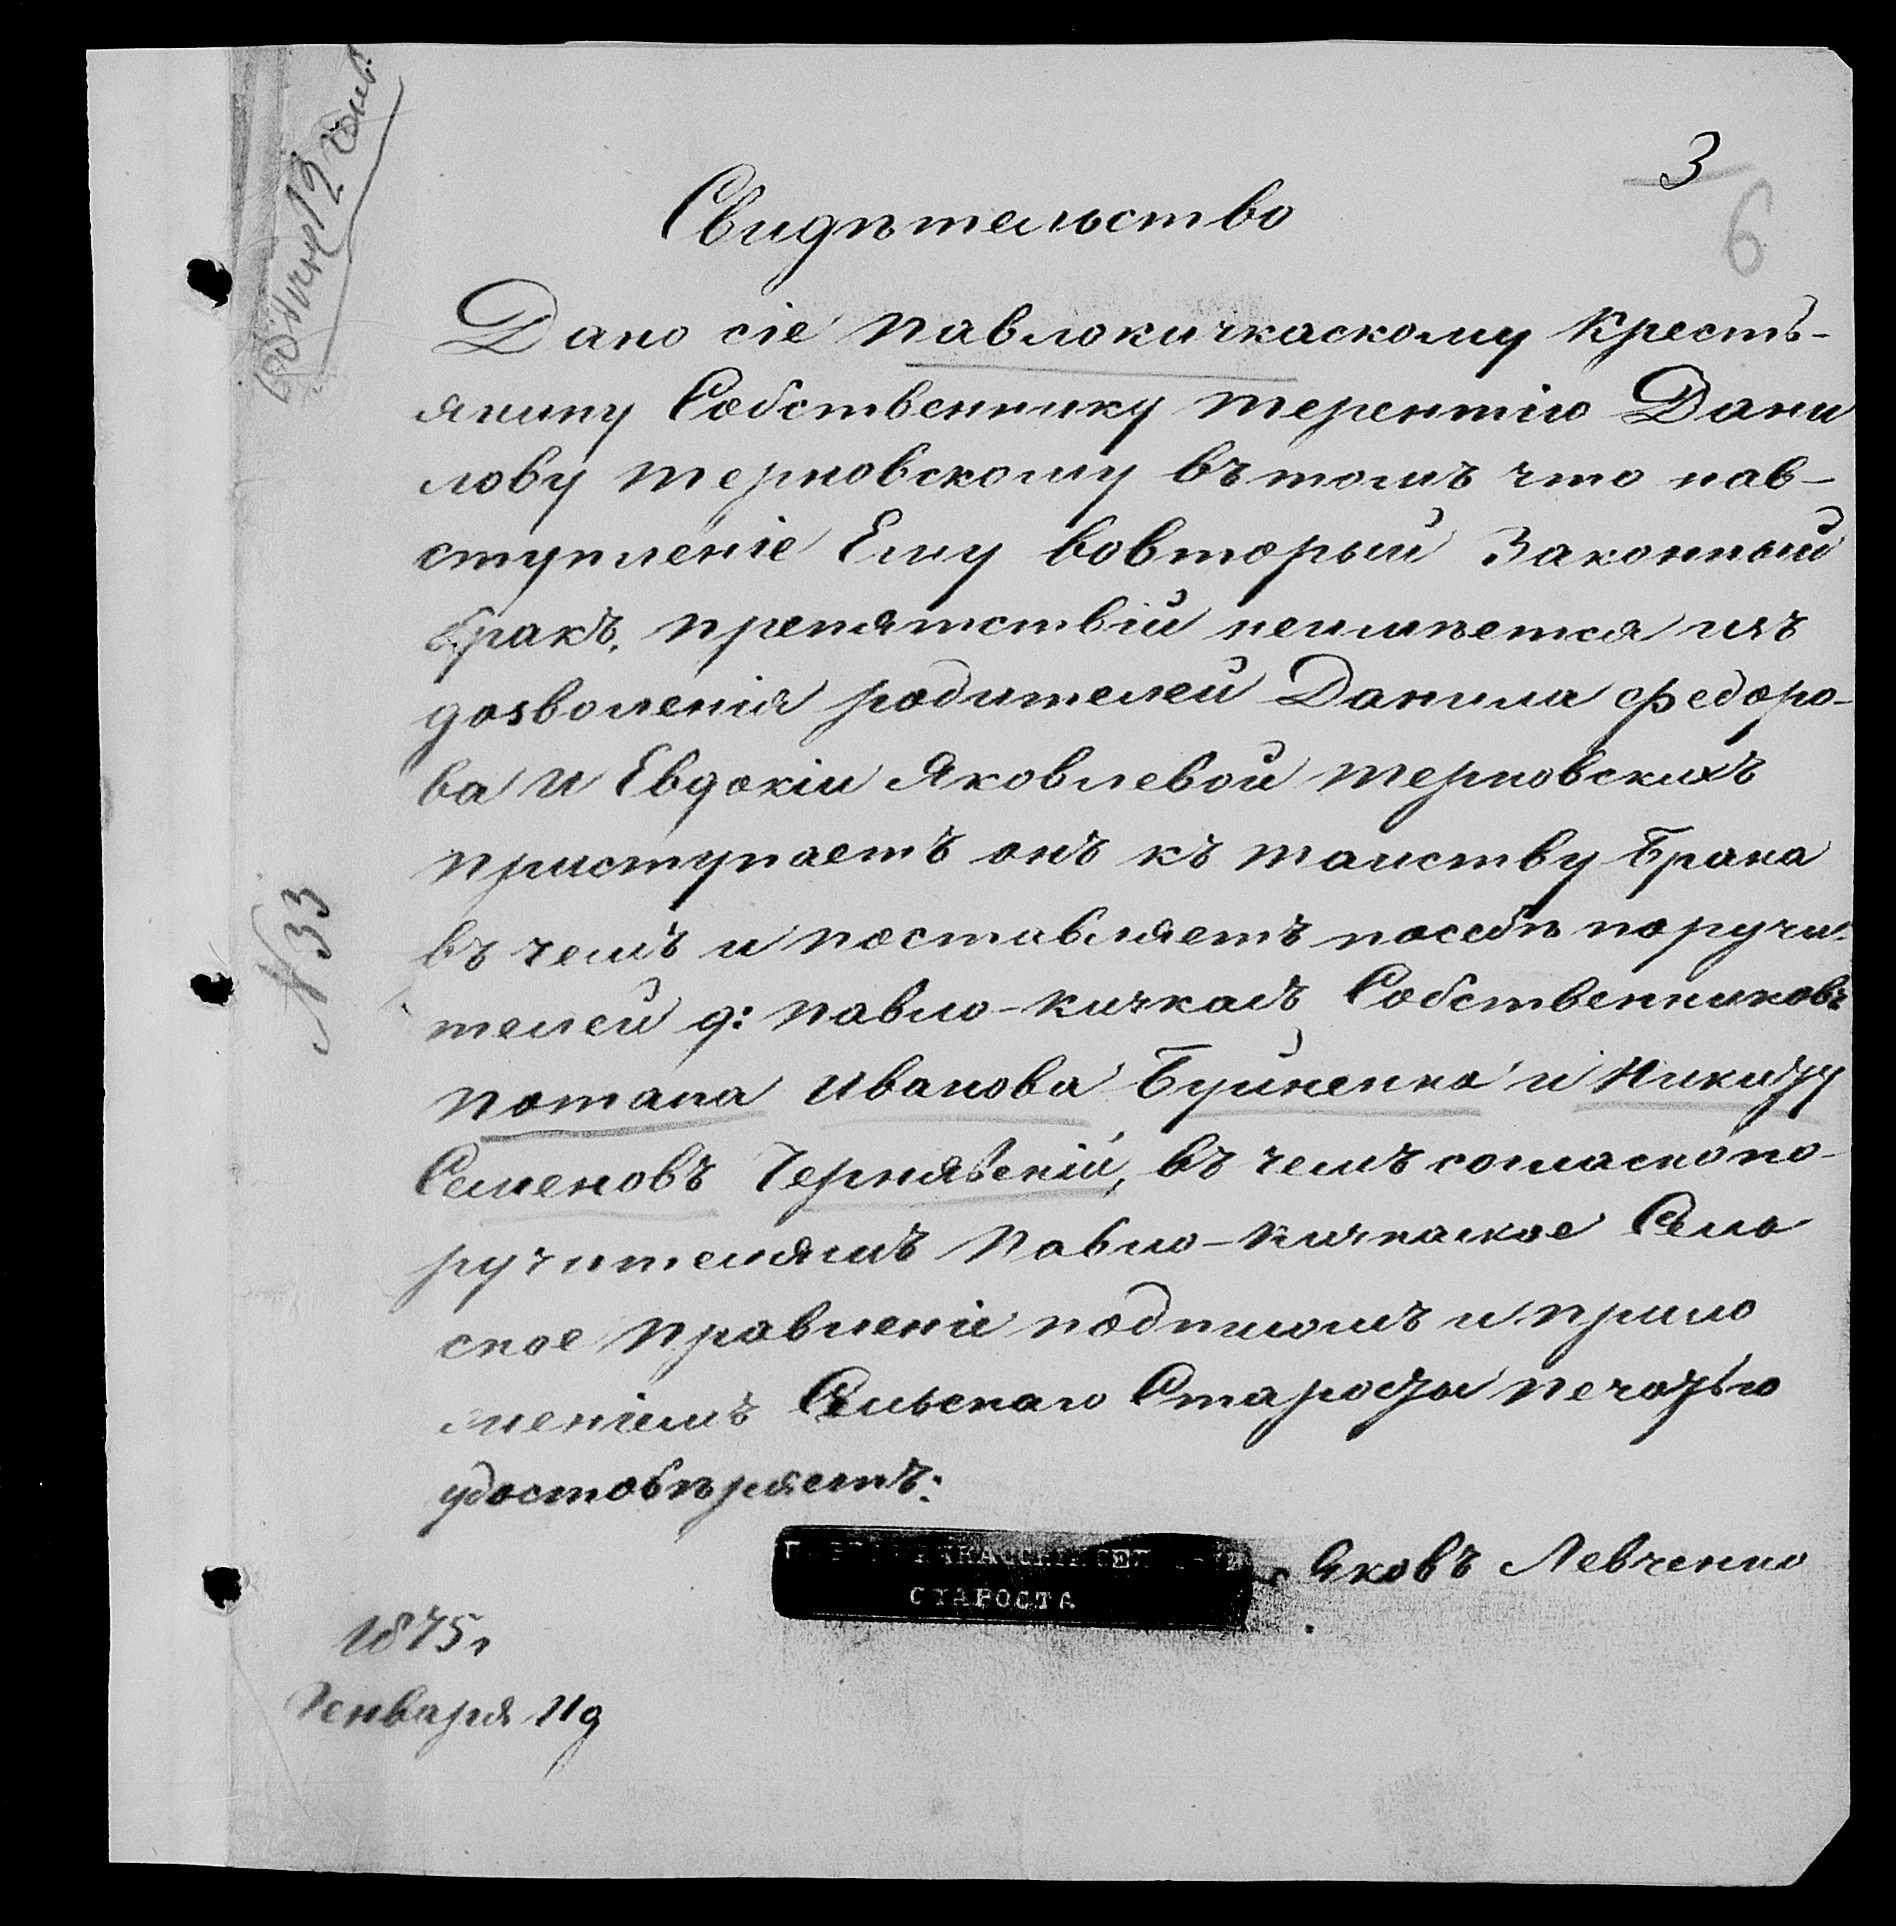 3
6
Свидѣтельство
Дано сіе Павлокичкаскому Кресть-
янину Собственнику Терентію Дани
лову Терновскому въ томъ что нав-
ступленіе Ему вовторый Законный
бракъ, препятствій неимѣется изъ
дозволенія родителей Данила Федоро-
ва и Евдокіи Яковлевой Терновскихъ
приступаетъ онъ къ таиству Брака
въ чемъ и поставляетъ посебѣ поручи-
телей д: Павло-Кичкасъ Собственниковъ
Потапа Иванова Буйненка и Никиту
Семеновъ Чернявскій, въ чемъ согласно по-
ручителямъ Павло-Кичкаское Сель
ское Правленіе подписомъ и прило
женіемъ Сельскаго Старосты печатью
удостовѣряетъ:
СТАРОСТА
Яковъ Левченко
1875 г
Генваря 11 д
N 33